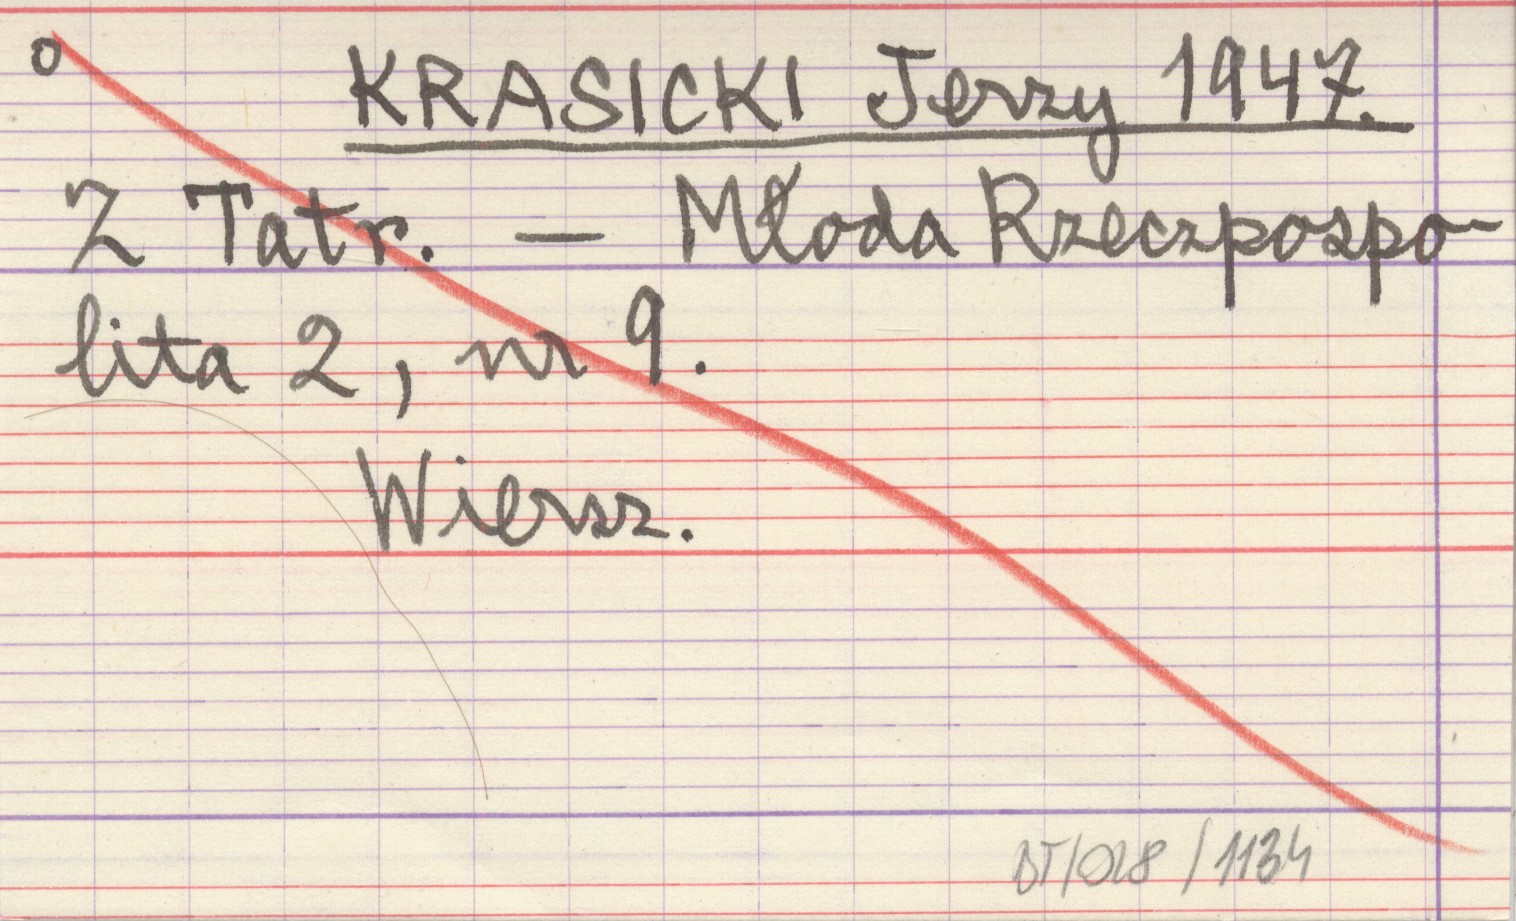 o
KRASICKI Jerzy 1947.
Z Tatr. — Młoda Rzeczpospo-
lita 2, nr 9.
Wiersz.
BT/028/1134